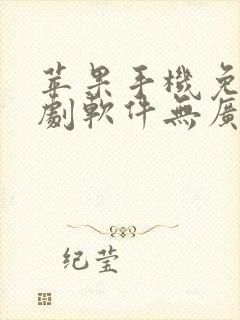 苹果手機免
劇軟件無廣
纪莹